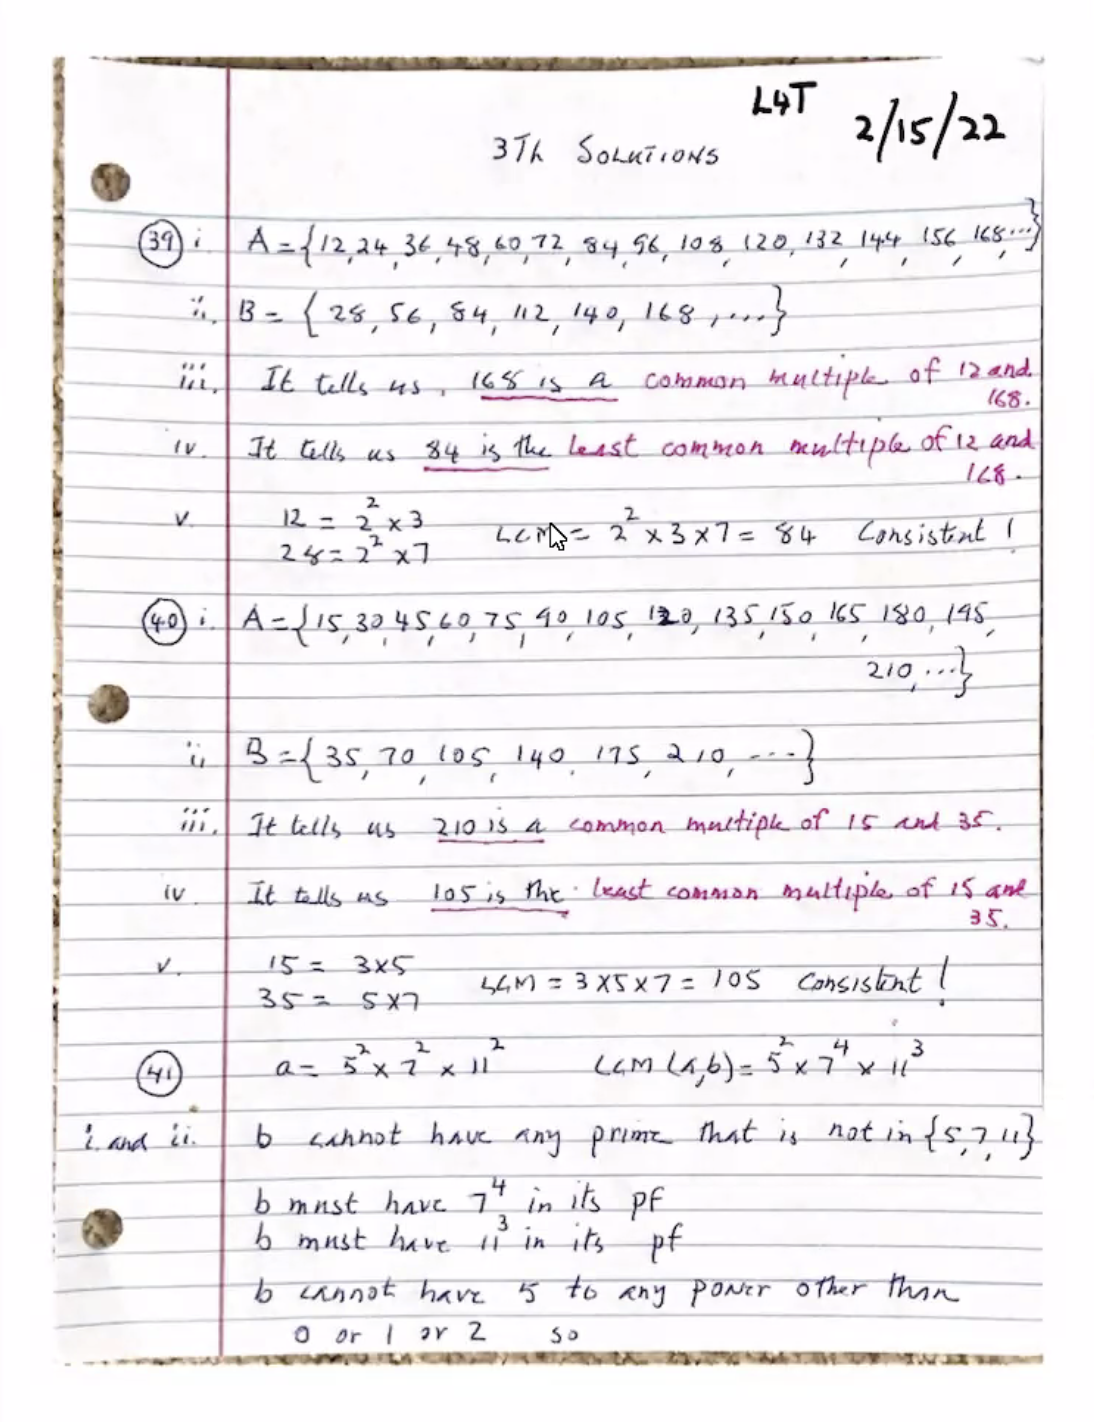 L4T
2/15/22
3Th SOLUTIONS
39 i. A = {12, 24, 36, 48, 60, 72, 84, 96, 108, 120, 132, 144, 156, 168, ...}
ii. B = {28, 56, 84, 112, 140, 168, ....}
iii. It tells us, 168 is a common multiple of 12 and
168.
iv. It tells us 84 is the least common multiple of 12 and
168.
v. 12 = 2² × 3 LCM = 2² × 3 × 7 = 84 Consistent !
28 = 2² × 7
40 i. A = {15, 30, 45, 60, 75, 90, 105, 120, 135, 150, 165, 180, 195,
210, ...}
ii. B = {35, 70, 105, 140, 175, 210, ....}
iii. It tells us 210 is a common multiple of 15 and 35.
iv It tells us 105 is the least common multiple of 15 and
35.
v. 15 = 3×5 LCM = 3×5×7 = 105 Consistent !
35 = 5×7
41 a = 5² × 7² × 11² LCM (a,b) = 5² × 7⁴ × 11³
i. and ii. b cannot have any prime that is not in {5, 7, 11}
b must have 7⁴ in its pf
b must have 11³ in its pf
b cannot have 5 to any power other than
0 or 1 or 2 so